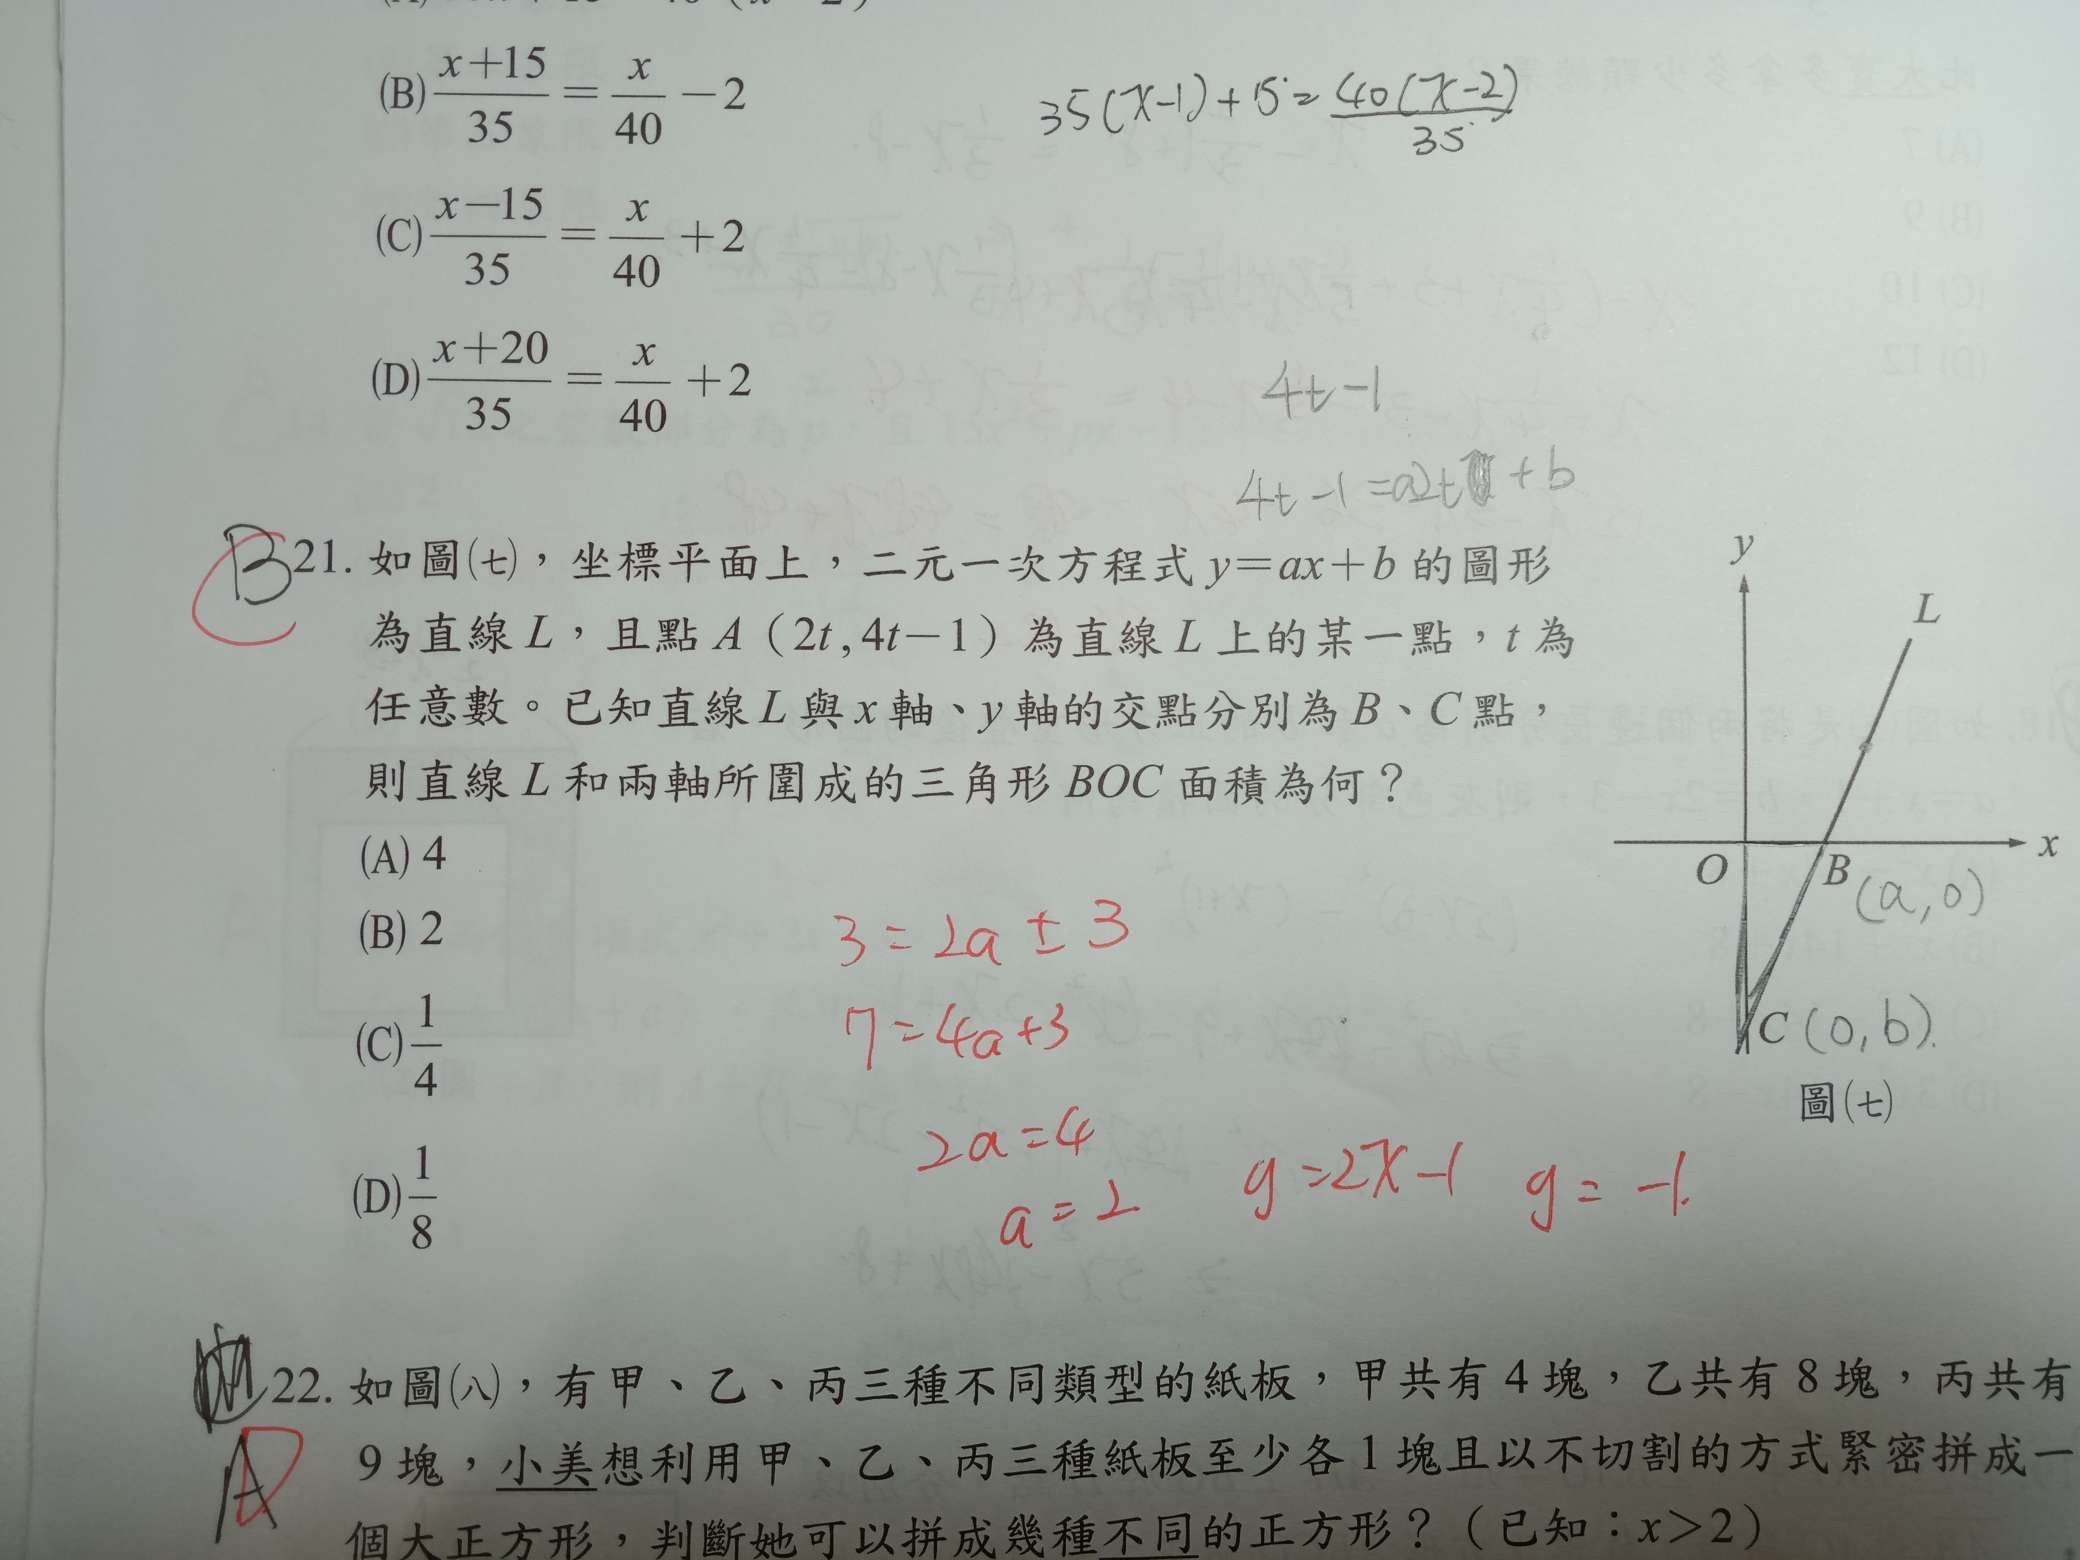 (B) \frac{x+15}{35} = \frac{x}{40} −2
35(x-1)+15=\frac{40(x-2)}{35}
(C) \frac{x−15}{35} = \frac{x}{40} +2
(D) \frac{x+20}{35} = \frac{x}{40} +2
4t-1
4t-1=a2t+b
B
C
21. 如圖(七)，坐標平面上，二元一次方程式 y=ax+b 的圖形
為直線 L，且點 A（2t , 4t−1）為直線 L 上的某一點，t 為
任意數。已知直線 L 與 x 軸、y 軸的交點分別為 B、C 點，
則直線 L 和兩軸所圍成的三角形 BOC 面積為何？
(A) 4
(B) 2
(C) \frac{1}{4}
(D) \frac{1}{8}
y
L
x
O
B (a,0)
C (0,b).
圖(七)
3=2a±3
7=4a+3
2a=4
a=2
y=2x-1
y=-1.
A
D
22. 如圖(八)，有甲、乙、丙三種不同類型的紙板，甲共有 4 塊，乙共有 8 塊，丙共有
9 塊，小美想利用甲、乙、丙三種紙板至少各 1 塊且以不切割的方式緊密拼成一
個大正方形，判斷她可以拼成幾種不同的正方形？（已知：x>2）